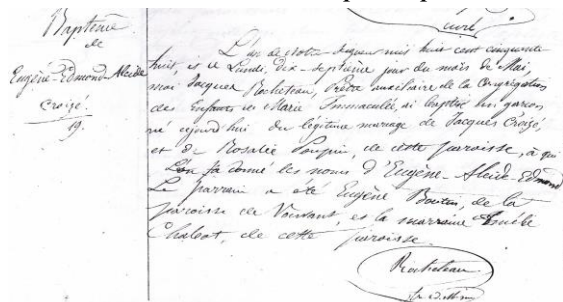 civil
Baptême
de
Eugène-Edmond-Alcide
Croizé.
19.
L'an de notre Seigneur mil huit cent cinquante
huit, et le Lundi, dix-septième jour du mois de Mai,
moi Jacques Rocheteau, Prêtre auxiliaire de la Congrégation
des Enfants de Marie Immaculée, ai baptisé un garçon
né aujourd'hui du légitime mariage de Jacques Croizé,
et de Rosalie Poupin, de cette paroisse, à qui
l'on a donné les noms d'Eugène-Alcide-Edmond
Le parrain a été Eugène Boutin, de la
paroisse de Vouvant, et la marraine
Chabot, de cette paroisse.
Rocheteau